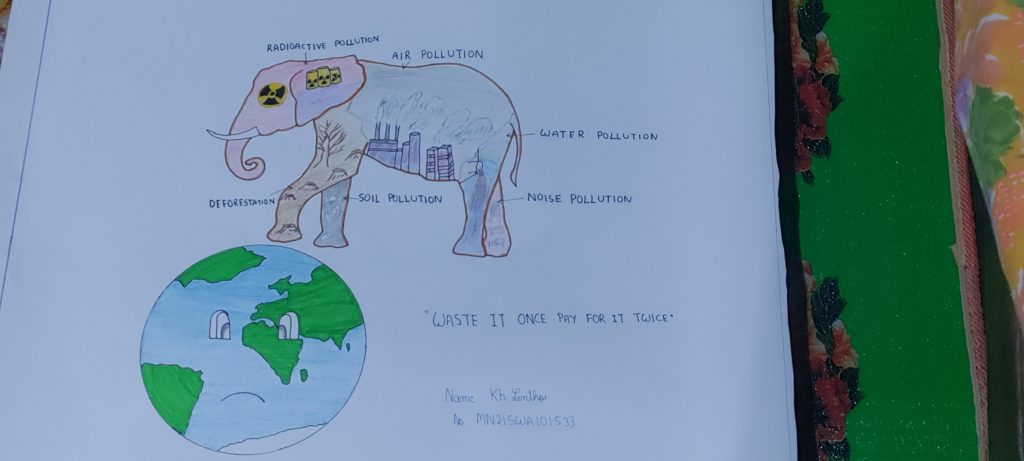 RADIOACTIVE POLLUTION
AIR POLLUTION
WATER POLLUTION
DEFORESTATION
SOIL POLLUTION
NOISE POLLUTION
"WASTE IT ONCE PAY FOR IT TWICE"
Name Kh.
No. MN21SWA101533